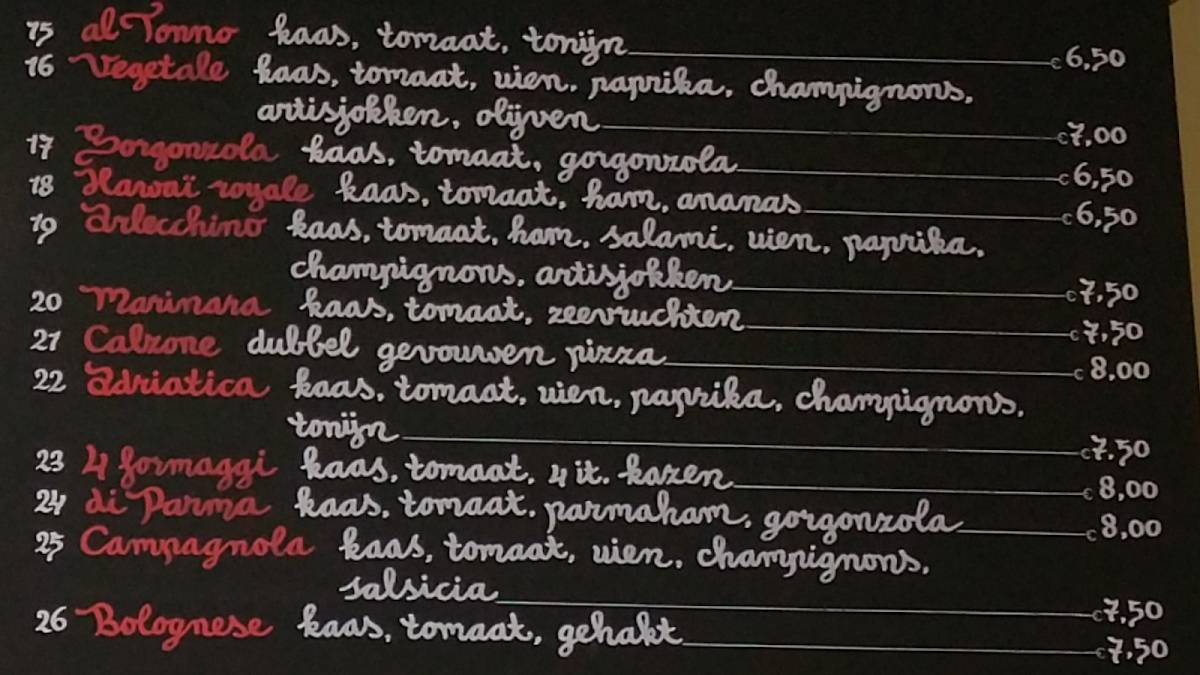 15 al Tonno kaas, tomaat, tonijn € 6,50
16 Vegetale kaas, tomaat, uien, paprika, champignons,
artisjokken, olijven € 7,00
17 Gorgonzola kaas, tomaat, gorgonzola € 6,50
18 Hawaï royale kaas, tomaat, ham, ananas € 6,50
19 Arlecchino kaas, tomaat, ham, salami, uien, paprika,
champignons, artisjokken € 7,50
20 Marinara kaas, tomaat, zeevruchten € 7,50
21 Calzone dubbel gevouwen pizza € 8,00
22 Adriatica kaas, tomaat, uien, paprika, champignons,
tonijn € 7,50
23 4 formaggi kaas, tomaat, 4 it. kazen € 8,00
24 di Parma kaas, tomaat, parmaham, gorgonzola € 8,00
25 Campagnola kaas, tomaat, uien, champignons,
salsicia € 7,50
26 Bolognese kaas, tomaat, gehakt € 7,50